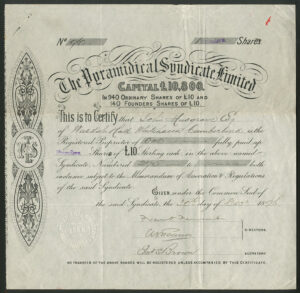 Nº Shares
The Pyramidical Syndicate Limited.
CAPITAL £10,800.
In 940 ORDINARY SHARES OF £10 AND
140 FOUNDERS SHARES OF £10.
This is to Certify that John Musgrave Esq
of Wasdale Hall Whitehaven Cumberland is the
Registered Proprietor of fully paid up
Shares of £10 Sterling each in the above named
Syndicate Numbered to both
inclusive subject to the Memorandum of Association & Regulations
of the said Syndicate.
GIVEN under the Common Seal of
the said Syndicate, the 30th day of Decr
DIRECTORS.
SECRETARY.
NO TRANSFER OF THE ABOVE SHARES WILL BE REGISTERED UNLESS ACCOMPANIED BY THIS CERTIFICATE.